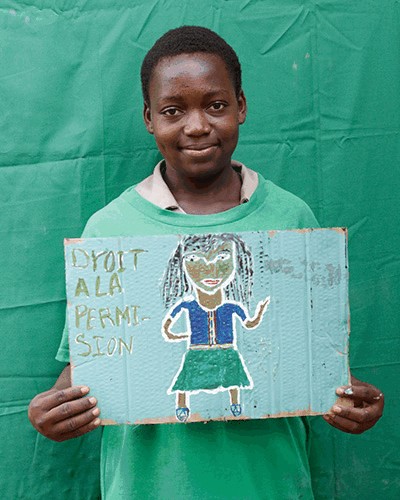 DYOIT
A LA
PERMI-
SION